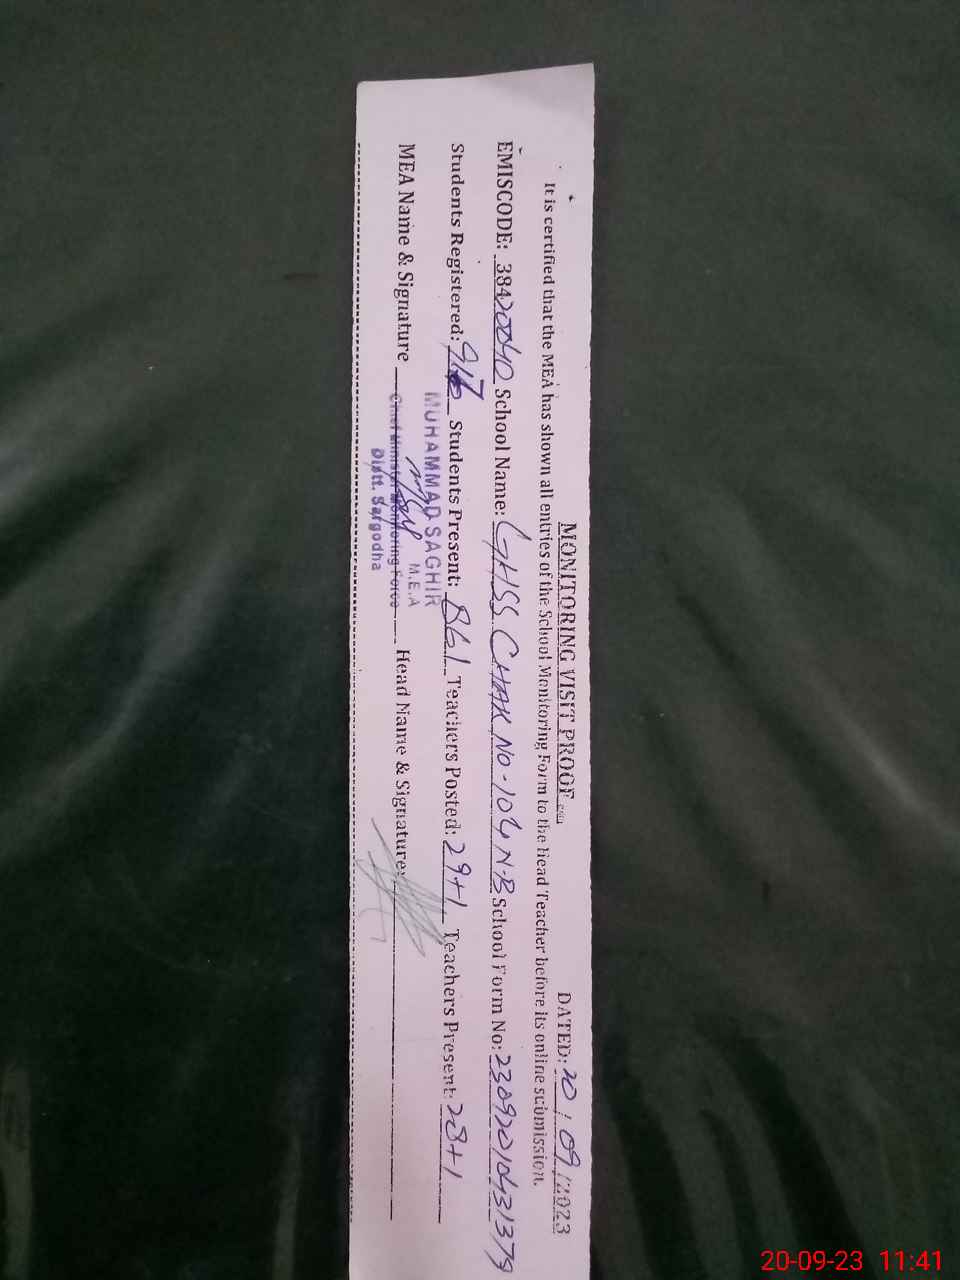 MONITORING VISIT PROOF DATED: 20/09/2023
It is certified that the MEA has shown all entries of the School Monitoring Form to the Head Teacher before its online submission.
EMISCODE: 38420040 School Name: GHSS CHAK NO-104 N-B School Form No: 23092010431379
Students Registered: 917 Students Present: 861 Teachers Posted: 29+1 Teachers Present: 28+1
MUHAMMAD SAGHIR
M.E.A
MEA Name & Signature Head Name & Signature:
Chief Minister Monitoring Force
Distt. Sargodha
20-09-23 11:41